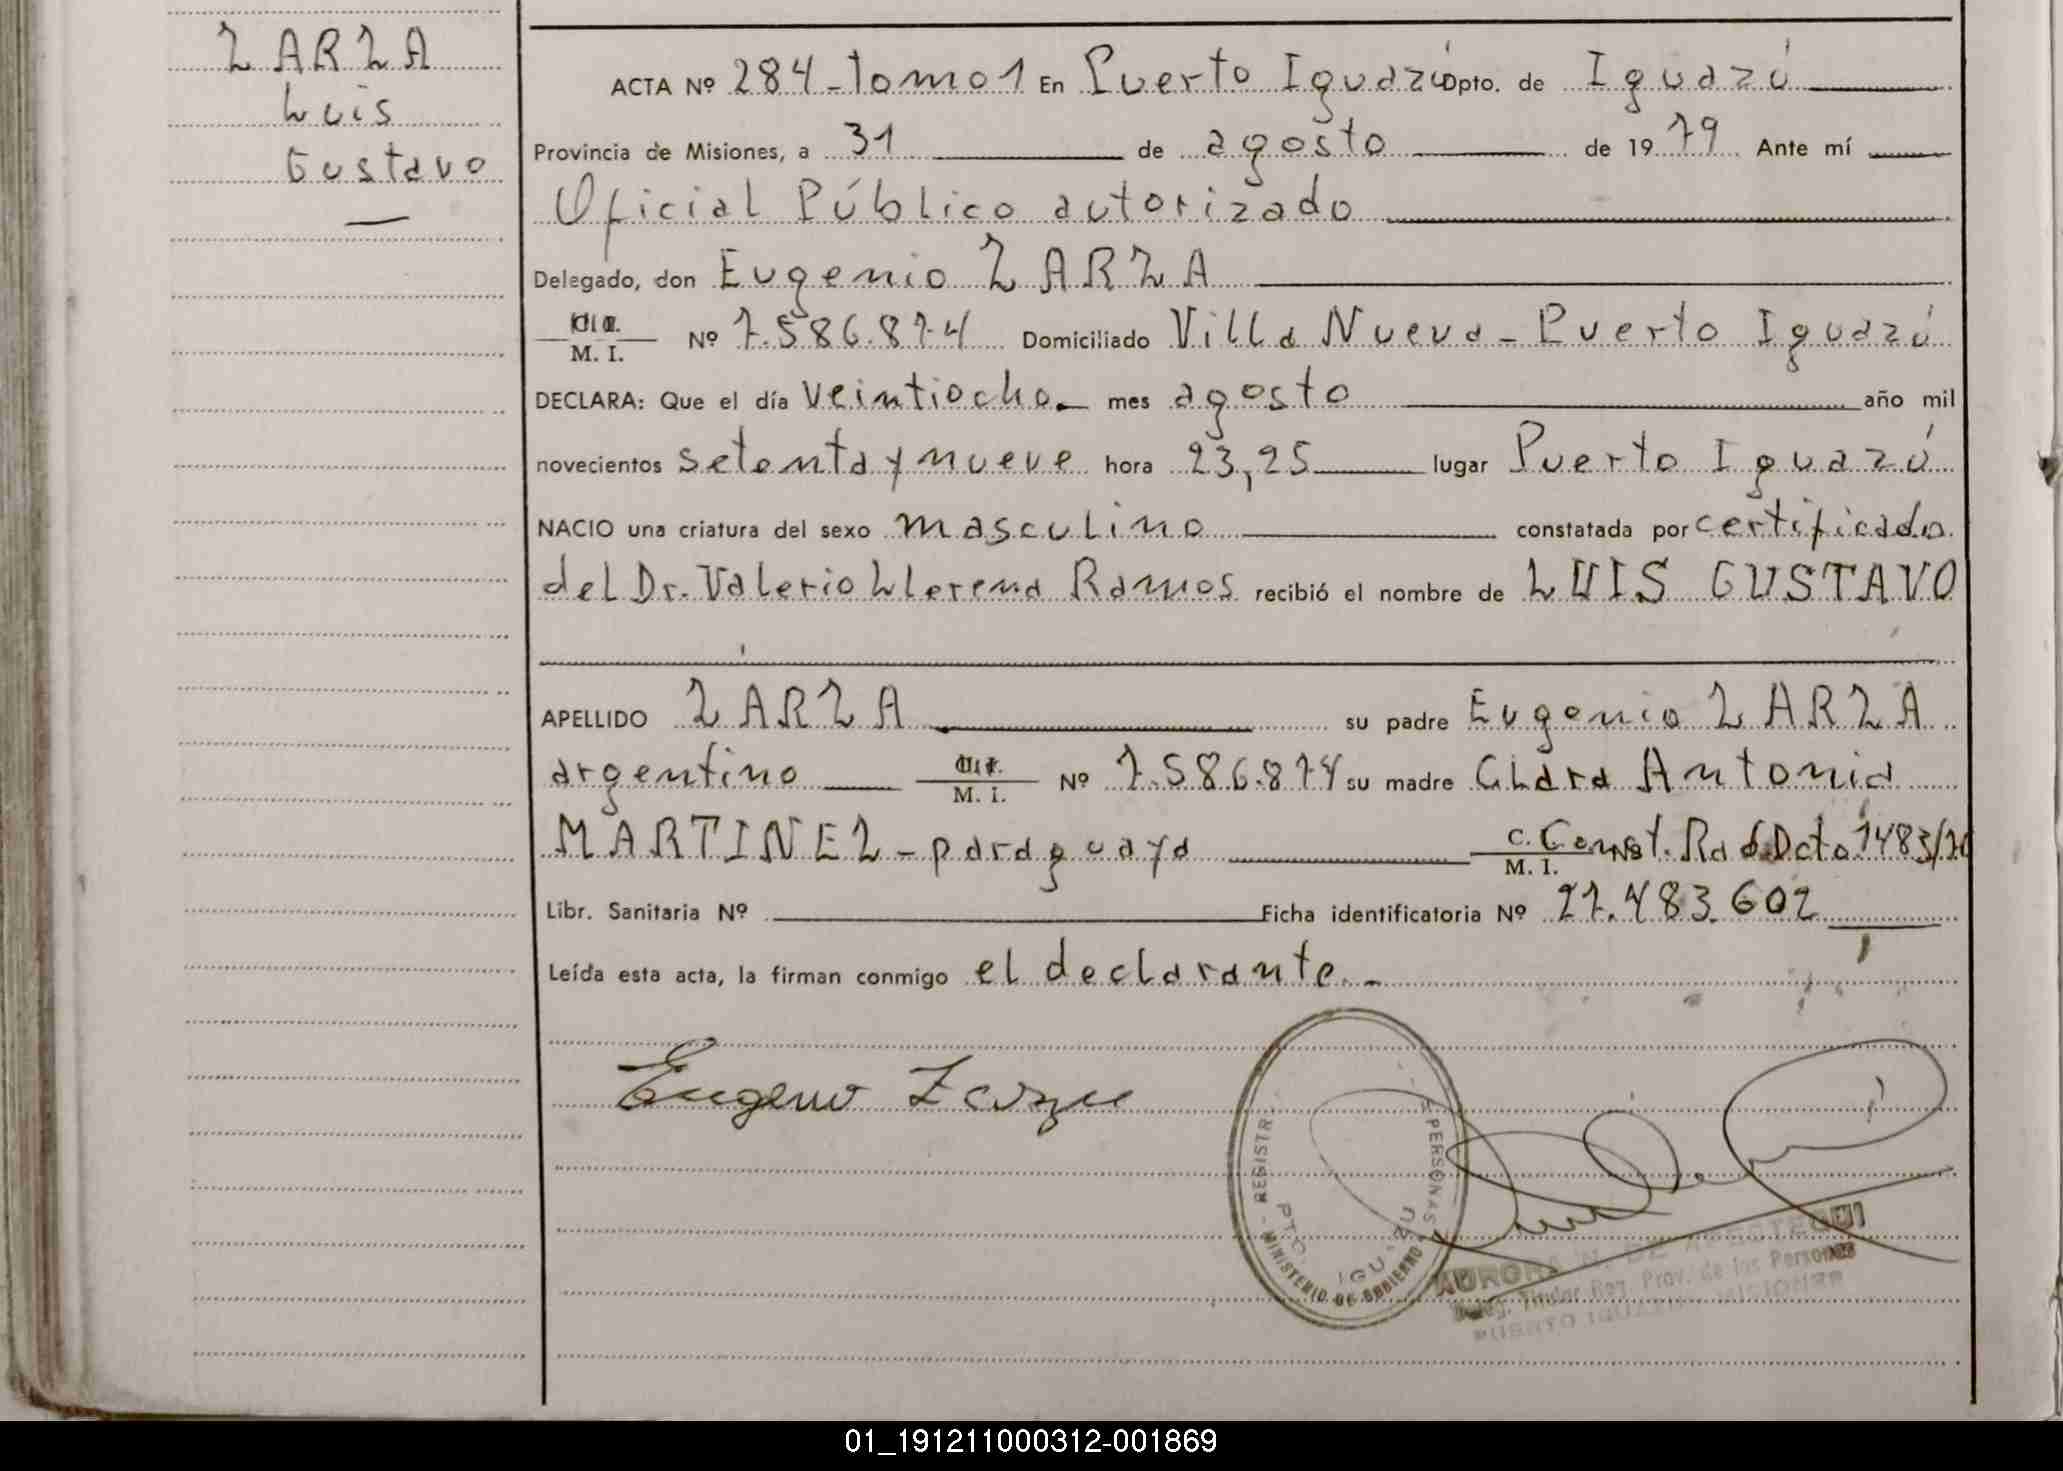 ZARZA
Luis
Gustavo
ACTA Nº 284-Tomo 1 En Puerto Iguazú Dpto. de Iguazú
Provincia de Misiones, a 31 de agosto de 1979 Ante mí
Oficial Público autorizado
Delegado, don Eugenio ZARZA
M. I. Nº 7.586.874 Domiciliado Villa Nueva - Puerto Iguazú
DECLARA: Que el día veintiocho mes agosto año mil
novecientos setenta y nueve hora 23,25 lugar Puerto Iguazú
NACIO una criatura del sexo masculino constatada por certificado
del Dr. Valerio Llerena Ramos recibió el nombre de LUIS GUSTAVO
APELLIDO ZARZA su padre Eugenio ZARZA
argentino M. I. Nº 7.586.874 su madre Clara Antonia
MARTINEZ - paraguaya C. Const. Rad. Dcto 1483/70
M. I.
Libr. Sanitaria Nº Ficha identificatoria Nº 27.483.602
Leída esta acta, la firman conmigo el declarante.-
Eugenio Zarza
REGISTR PERSONAS
PTO. IGUAZU
MINISTERIO DE GOBIERNO
AURORA N. DE
Deleg. Titular Reg. Prov. de las Personas
PUERTO IGUAZU MISIONES
01_191211000312-001869